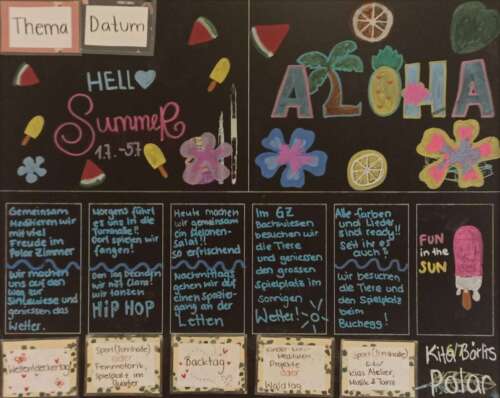 Thema
Datum
HELLO
Summer
1.7. - 5.7
ALOHA
Gemeinsam
meditieren wir
mit viel
Freude im
Polar Zimmer
Wir machen
uns auf den
weg zur
und
geniessen das
Wetter.
Morgens führt
es uns in die
Turnhalle!!
Dort spielen wir
fangen!
Den Tag beenden
wir mit
wir tanzen
HIP HOP
Heute machen
wir gemeinsam
ein Melonen-
Salat!!
so erfrischend
Nachmittags
gehen wir auf
einen Spazie-
gang an der
Letten
Im GZ
Bachwiesen
besuchen wir
die Tiere
und geniessen
den grossen
Spielplatz im
sonnigen
Wetter!
Alle farben
und Lieder
sind ready!!
Seit ihr es
auch?
Wir besuchen
die Tiere und
den Spielplatz
beim
Buchegg!
FUN
in the
SUN
Weltentdeckertag
Sport (Turnhalle)
oder
Feinmotorik,
Spielplatz im
Quartier
Backtag
Kinder
Projekte
oder
Waldtag
Sport (Turnhalle)
oder
Kids Atelier,
Musik & Tanz
KitG/Börlis
Polar